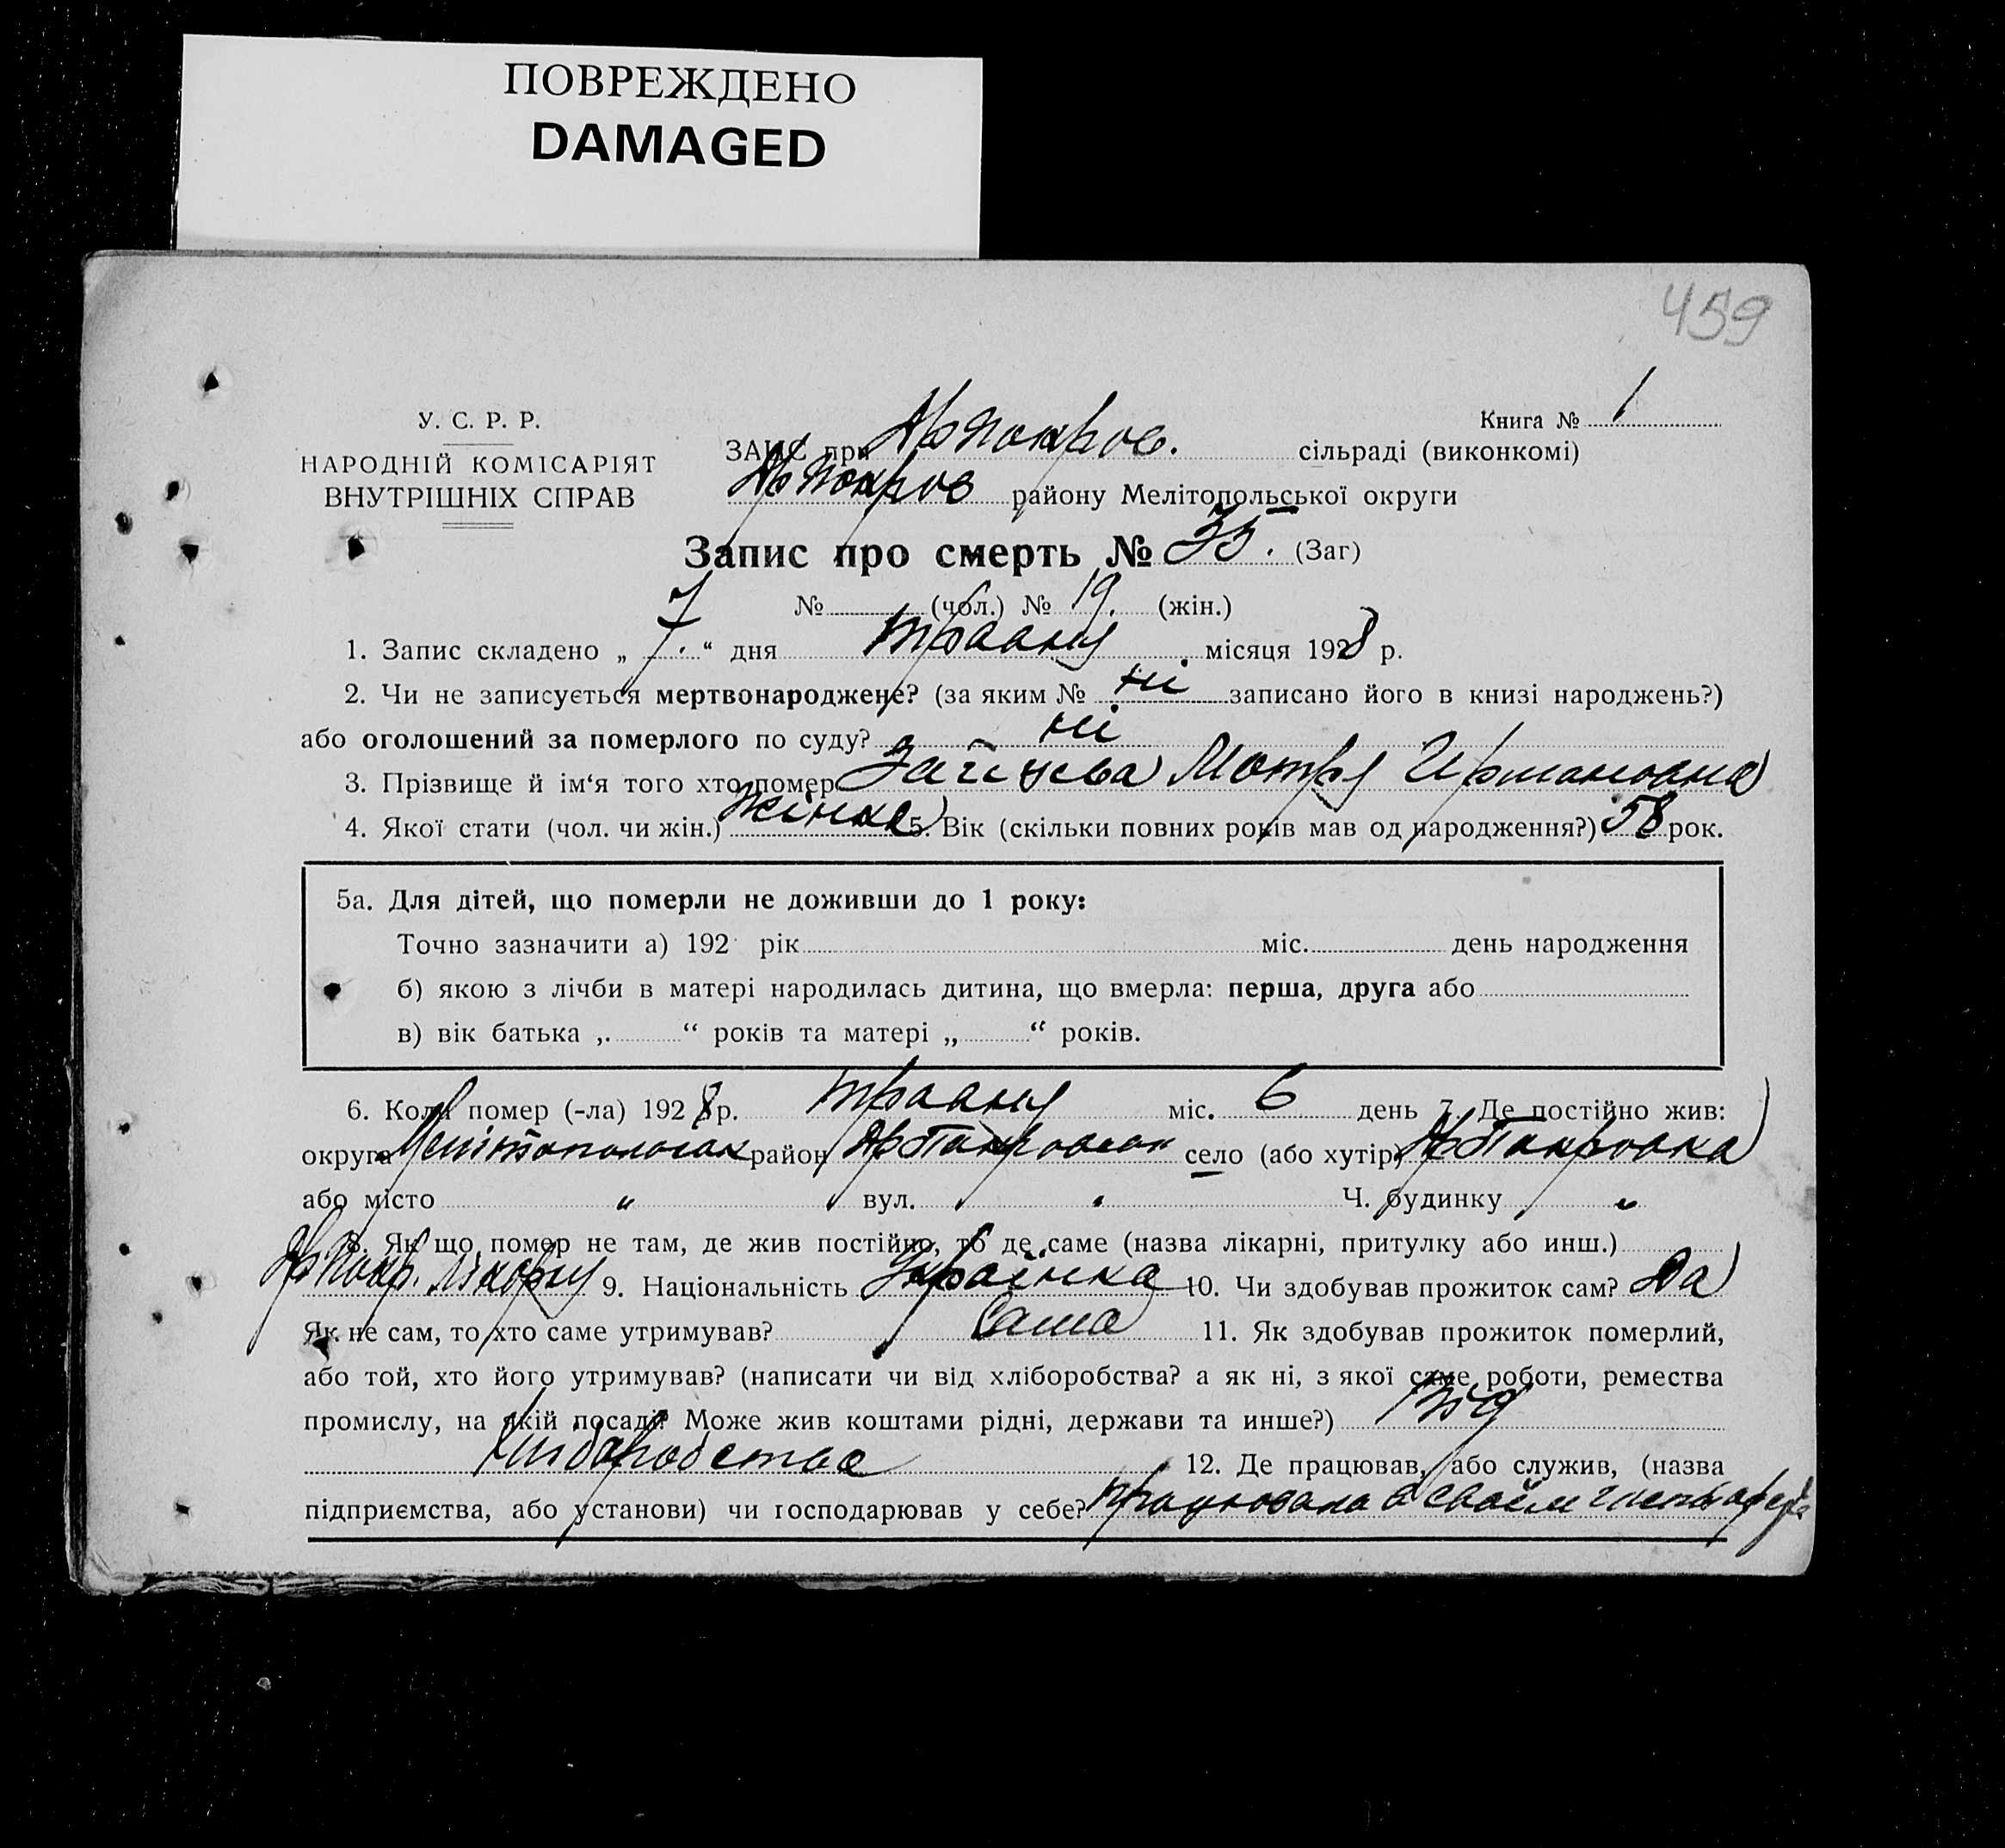 ПОВРЕЖДЕНО
DAMAGED
459
У. С. Р. Р.
НАРОДНІЙ КОМІСАРІЯТ
ВНУТРІШНІХ СПРАВ
Книга № 1
ЗАПС при сільраді (виконкомі)
району Мелітопольської округи
Запис про смерть № 35. (Заг)
№ (чол.) № 19. (жін.)
1. Запис складено „ 7. “ дня травня місяця 1928 р.
2. Чи не записується мертвонароджене? (за яким № ні записано його в книзі народжень?)
або оголошений за померлого по суду? ні
3. Прізвище й ім‘я того хто помер Зайцева Мотря
4. Якої стати (чол. чи жін.) жінка 5. Вік (скільки повних років мав од народження?) 58 рок.
5а. Для дітей, що померли не доживши до 1 року:
Точно зазначити а) 192 рік міс. день народження
б) якою з лічби в матері народилась дитина, що вмерла: перша, друга або
в) вік батька „ “ років та матері „ “ років.
6. Коли помер (-ла) 1928 р. травня міс. 6 день 7. Де постійно жив:
округа район село (або хутір)
або місто " вул. " Ч. будинку "
8. Як що помер не там, де жив постійно, то де саме (назва лікарні, притулку або инш.)
9. Національність Українка 10. Чи здобував прожиток сам? Да
Як не сам, то хто саме утримував? Сама 11. Як здобував прожиток померлий,
або той, хто його утримував? (написати чи від хліборобства? а як ні, з якої саме роботи, ремества
промислу, на якій посаді? Може жив коштами рідні, держави та инше?) Від
хліборобства 12. Де працював, або служив, (назва
підприємства, або установи) чи господарював у себе? працювала в своїм